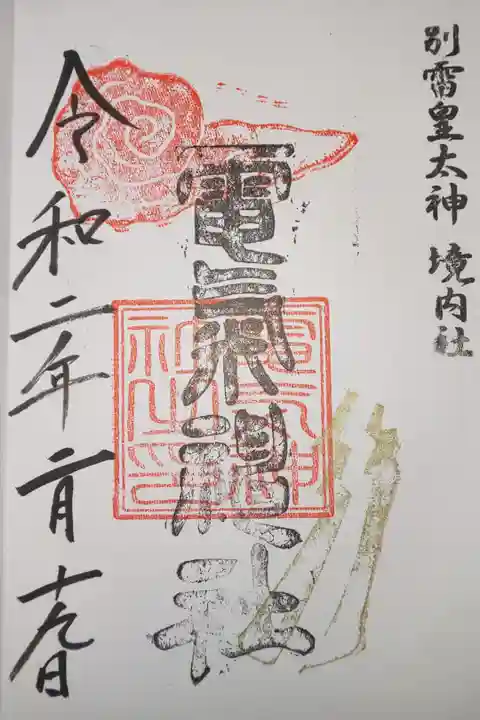 別雷皇太神 境内社
電氣神社
電氣神社之印
令和二年二月十九日